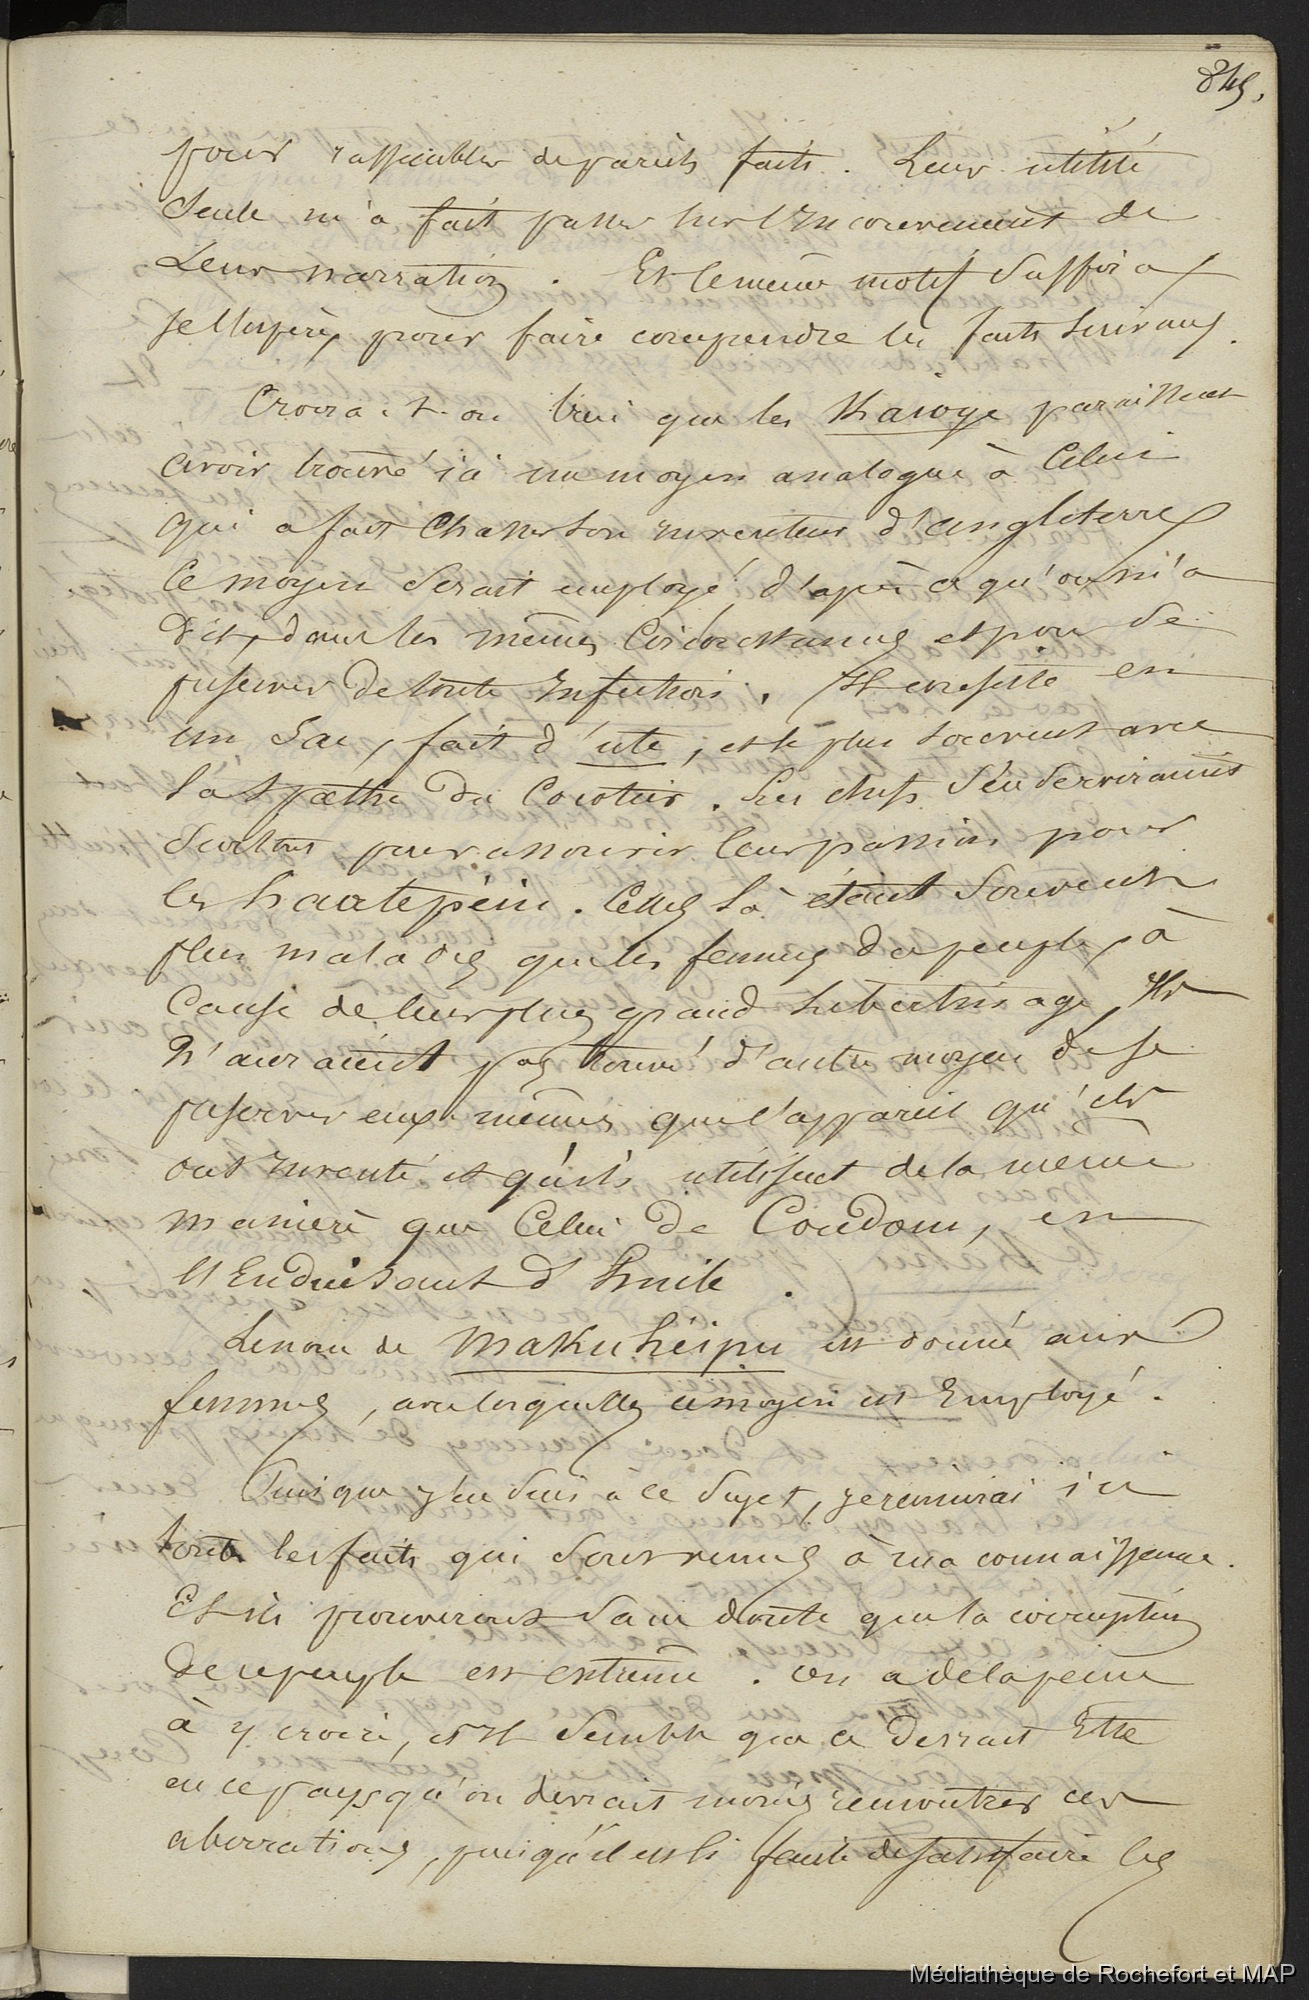 845.
pour rassembler de pareils faits. Leur utilité
seule m'a fait passer sur l'Inconvenient de
Leur narration. Et le même motif Suffira
je l'espère, pour faire comprendre les faits Suivans.
Croira-t-on bien que les Kaioge paraissent
avoir trouvé ici un moyen analogue à Celui
qui a fait Chasser son inventeur d'angleterre
Ce moyen Serait employé, d'après ce qu'on m'a
dit, dans les mêmes Circonstances et pour Se
préserver de toute Infection. Il consiste en
un Sac, fait d'ute, et le plus Souvent avec
la Spathe du Cocotier. Les chefs S'en Serviraient
Surtout pour assouvir leur passion pour
les haatepéiu. Celles là étant Souvent
plus malades que les femmes du peuple, à
Cause de leur plus grand libertinage, Ils
N'auraient pas trouvé d'autre moyen de se
préserver eux-mêmes que l'appareil qu'ils
ont Inventé et qu'ils utilisent de la meme
maniere que Celui de Condom, en
l'Enduisant d'huile.
Le nom de Makuhéipu est donné aux
femmes, avec lesquelles ce moyen est Employé.
Puis que j'en Suis à ce Sujet, je reunirai ici
tous les faits qui Sont venus à ma connaissance.
Et ils prouveront Sans doute que la corruption
de ce peuple est extrême. On a de la peine
à y croire, et Il Semble que ce devrait Etre
en ce pays qu'on devrait moins rencontrer ces
aberrations, puisqu'il est si facile de satisfaire les
Médiathèque de Rochefort et MAP